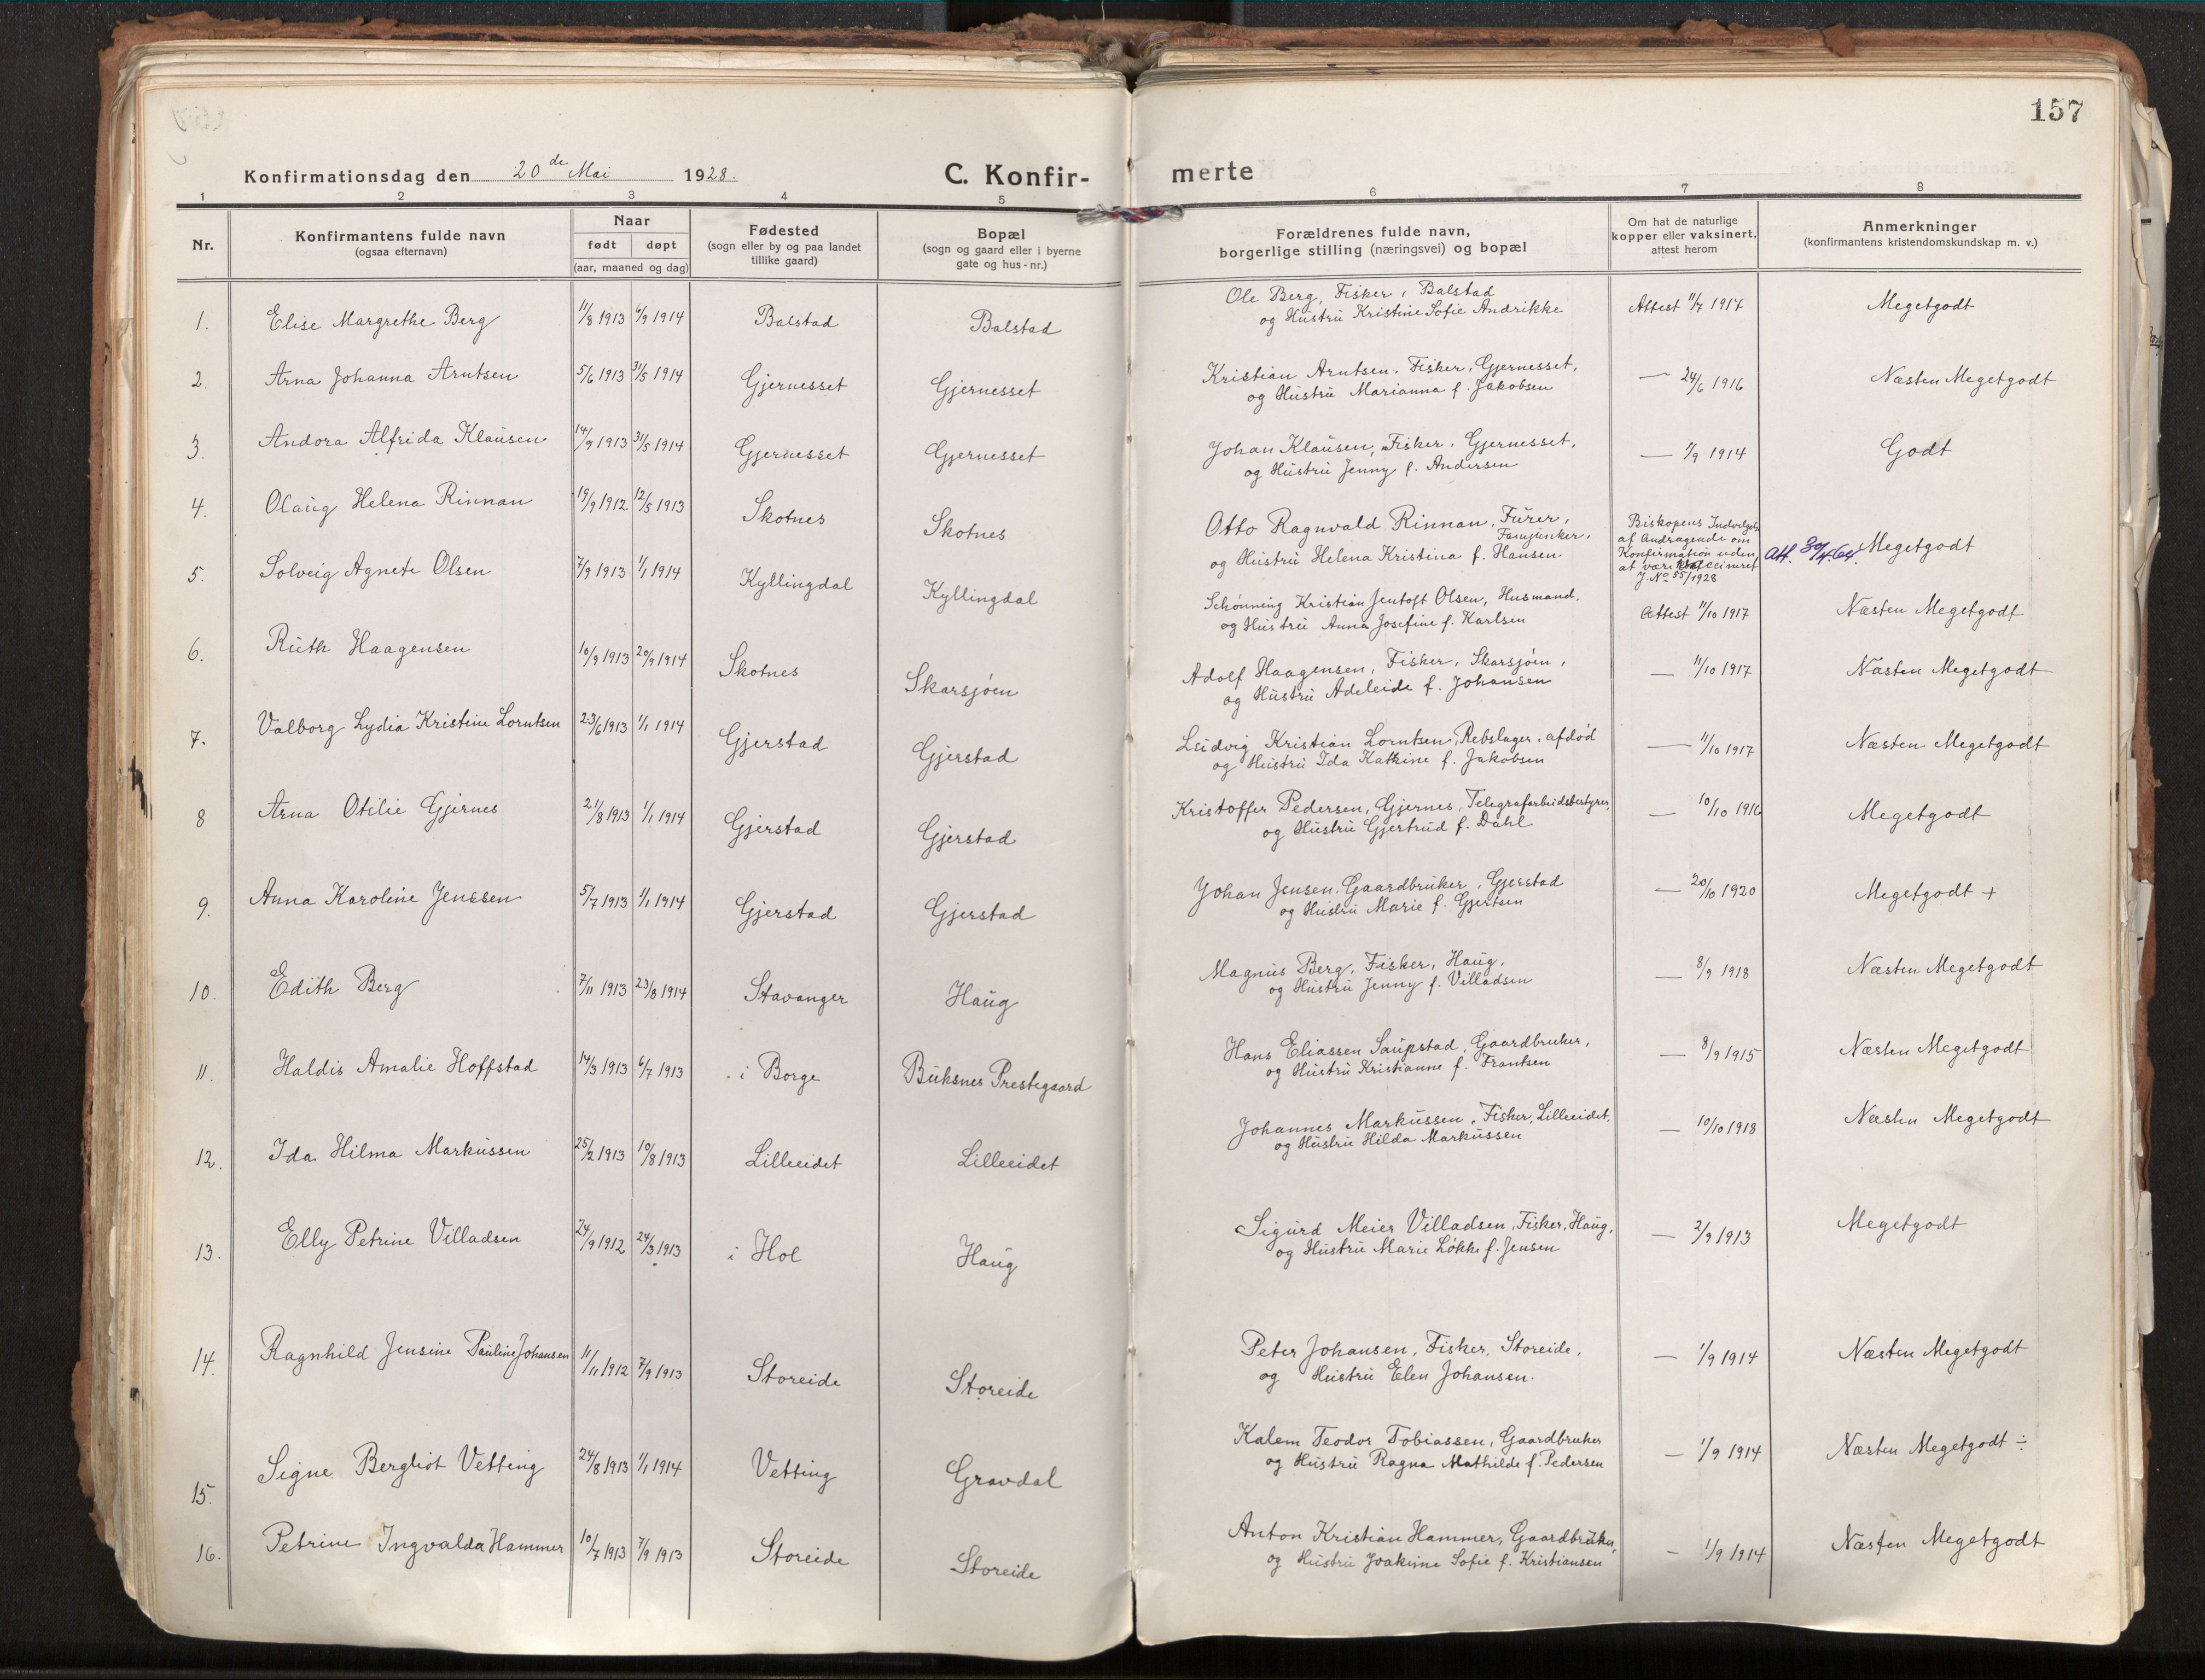 157
Konfirmationsdag den 20de Mai 1928. C. Konfir- merte
1 2 3 4 5 6 7 8
Nr.
Konfirmantens fulde navn
(ogsaa efternavn)
Naar
født døpt
(aar, maaned og dag)
Fødested
(sogn eller by og paa landet
tillike gaard)
Bopæl
(sogn og gaard eller i byerne
gate og hus-nr.)
Forældrenes fulde navn,
borgerlige stilling (næringsvei) og bopæl
Om hat de naturlige
kopper eller vaksinert,
attest herom
Anmerkninger
(konfirmantens kristendomskundskap m. v.)
1. Elise Margrethe Berg 11/8 1913 6/9 1914 Balstad Balstad
Ole Berg, Fisker, Balstad
og Hustru Kristine Sofie Andrikke
Attest 11/7 1914 Megetgodt
2. Arna Johanna Arntsen 5/6 1913 31/5 1914 Gjernesset Gjernesset
Kristian Arntsen, Fisker, Gjernesset,
og Hustru Marianna f. Jakobsen
— 24/6 1916 Næsten Megetgodt
3. Andora Alfrida Klausen 14/9 1913 31/5 1914 Gjernesset Gjernesset
Johan Klausen, Fisker, Gjernesset,
og Hustru Jenny f. Andersen
— 1/9 1914 Godt
4. Olaug Helena Rinnan 19/9 1912 12/5 1913 Skotnes Skotnes
Otto Ragnvald Rinnan, Furer,
Fanejunker,
og Hustru Helena Kristina f. Hansen
Biskopens
af Andragende om
Konfirmation uden
at være
J. No 55/1928
Att. 30/4.64. Megetgodt
5. Solveig Agnete Olsen 7/9 1913 1/1 1914 Kyllingdal Kyllingdal
Schønning Kristian Jentoft Olsen, Husmand,
og Hustru Anna Josefine f. Karlsen
Attest 11/10 1917 Næsten Megetgodt
6. Ruth Haagensen 10/9 1913 20/9 1914 Skotnes Skarsjøen
Adolf Haagensen, Fisker, Skarsjøen,
og Hustru Adeleide f. Johansen
— 11/10 1917 Næsten Megetgodt
7. Valborg Lydia Kristine Lorntsen 23/6 1913 1/1 1914 Gjerstad Gjerstad
Ludvig Kristian Lorntsen, Rebslager, afdød
og Hustru Ida Katrine f. Jakobsen
— 11/10 1917 Næsten Megetgodt
8 Arna Otilie Gjernes 21/8 1913 1/1 1914 Gjerstad Gjerstad
Kristoffer Pedersen, Gjernes, Telegrafarbeidsbestyrer,
og Hustru Gjertrud f. Dahl
— 10/10 1916 Megetgodt
9. Anna Karoline Jenssen 5/7 1913 1/1 1914 Gjerstad Gjerstad
Johan Jensen, Gaardbruker, Gjerstad
og Hustru Marie f. Gjertsen
— 20/10 1920 Megetgodt +
10. Edith Berg 7/11 1913 23/8 1914 Stavanger Haug
Magnus Berg, Fisker, Haug,
og Hustru Jenny f. Villadsen
— 8/9 1918 Næsten Megetgodt
11. Haldis Amalie Hoffstad 14/3 1913 6/7 1913 i Borge Buksnes Prestegaard
Hans Eliassen Saupstad, Gaardbruker,
og Hustru Kristianne f. Frantsen
— 8/9 1915 Næsten Megetgodt
12. Ida Hilma Markussen 25/2 1913 10/8 1913 Lilleeidet Lilleeidet
Johannes Markussen, Fisker, Lilleeidet,
og Hustru Hilda Markussen
— 10/10 1918 Næsten Megetgodt
13. Elly Petrine Villadsen 24/9 1912 24/3 1913 i Hol Haug
Sigurd Meier Villadsen, Fisker, Haug,
og Hustru Marie Løkke f. Jensen
— 2/9 1913 Megetgodt
14. Ragnhild Jensine Pauline Johansen 11/11 1912 7/9 1913 Storeide Storeide
Peter Johansen, Fisker, Storeide,
og Hustru Elen Johansen.
— 1/9 1914 Næsten Megetgodt
15. Signe Bergliot Vetting 24/8 1913 1/1 1914 Vetting Gravdal
Kalem Teodor Tobiassen, Gaardbruker
og Hustru Ragna Mathilde f. Pedersen
— 1/9 1914 Næsten Megetgodt ÷
16. Petrine Ingvalda Hammer 10/7 1913 7/9 1913 Storeide Storeide
Anton Kristian Hammer, Gaardbruker,
og Hustru Joakime Sofie f. Kristiansen
— 1/9 1914 Næsten Megetgodt